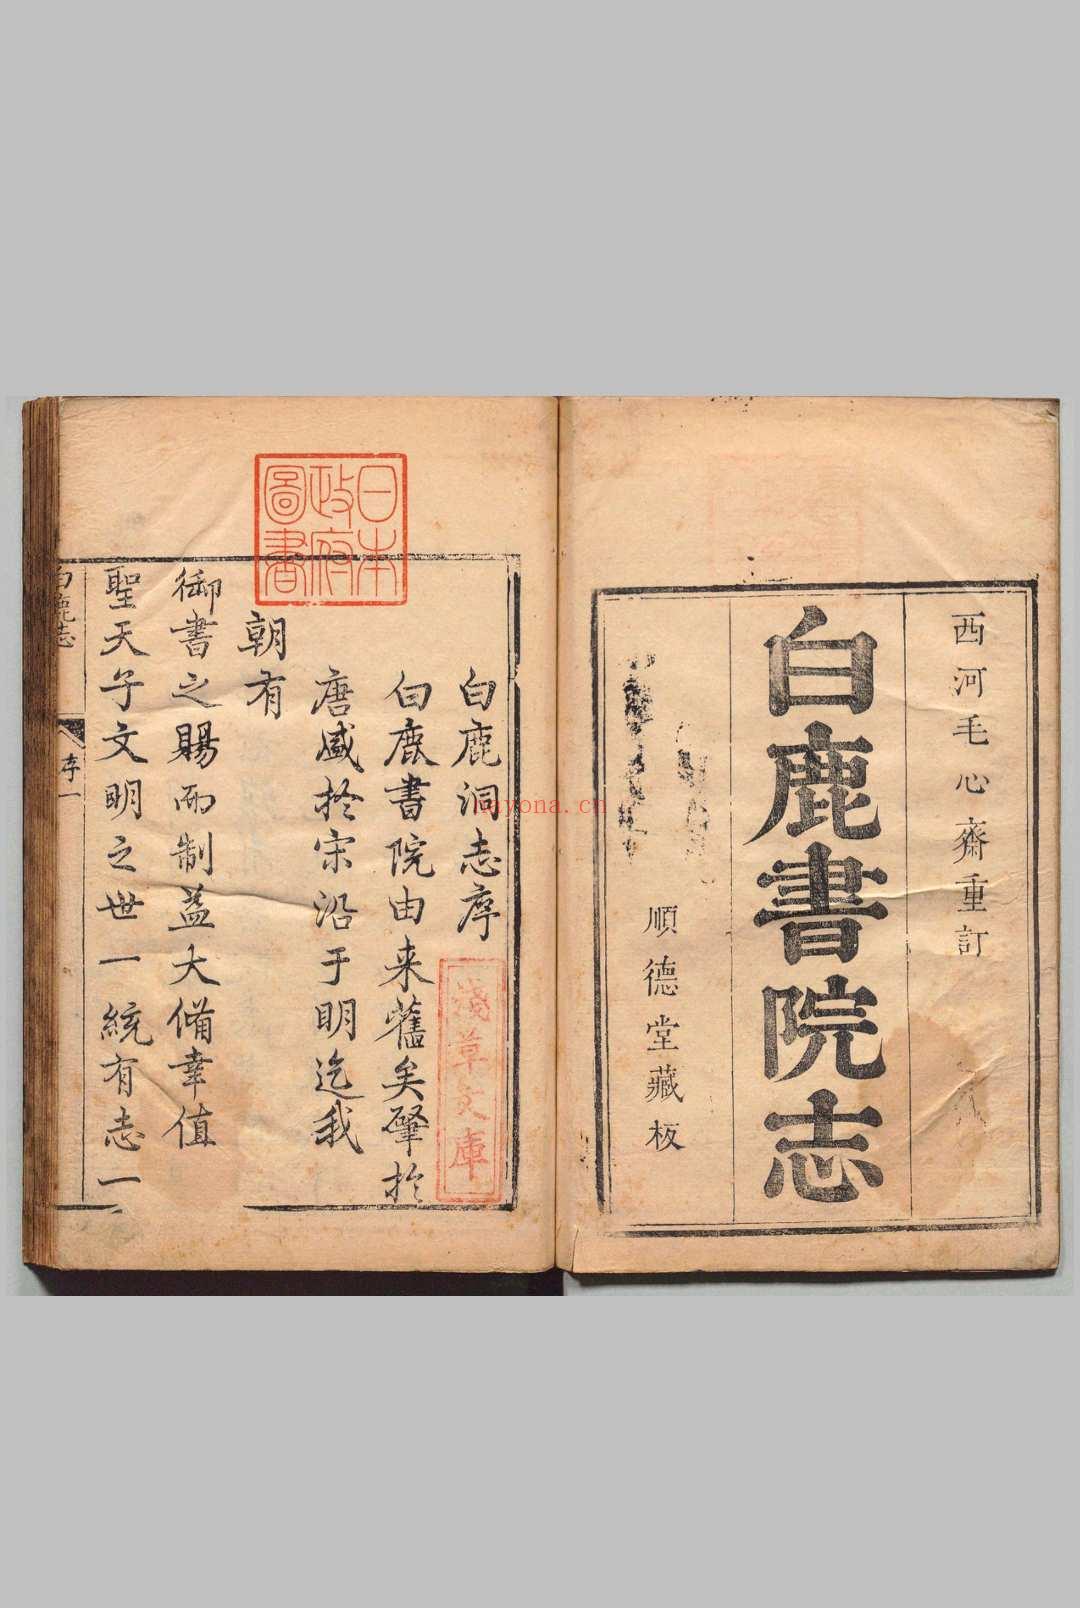 西河毛心齋重訂
白鹿書院志
順德堂藏板
日本
政府
圖書
淺草文庫
白鹿洞志序
白鹿書院由来舊矣肇於
唐盛於宋沿于明迄我
朝有
御書之賜而制益大備幸值
聖天子文明之世一統有志一
白鹿志
序一
nayona.cn